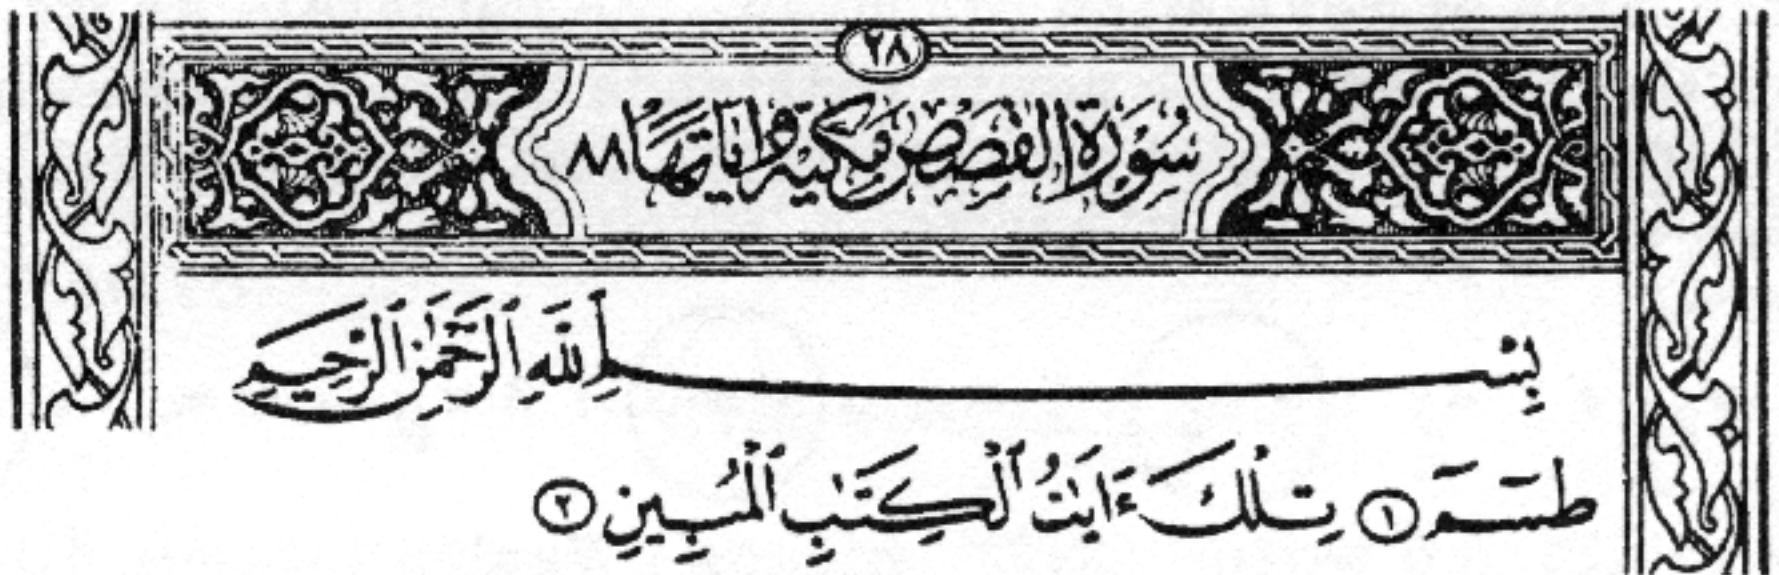 ٢٨
سُوْرَةُ القَصَصِ مَكِّيَّةٌ وَاٰيَاتُهَا ٨٨
بِسْمِ ٱللَّهِ ٱلرَّحْمَٰنِ ٱلرَّحِيمِ
طسٓمٓ ١ تِلْكَ ءَايَٰتُ ٱلْكِتَٰبِ ٱلْمُبِينِ ٢